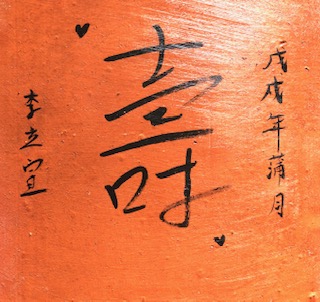 戊戌年蒲月
壽
李立宣